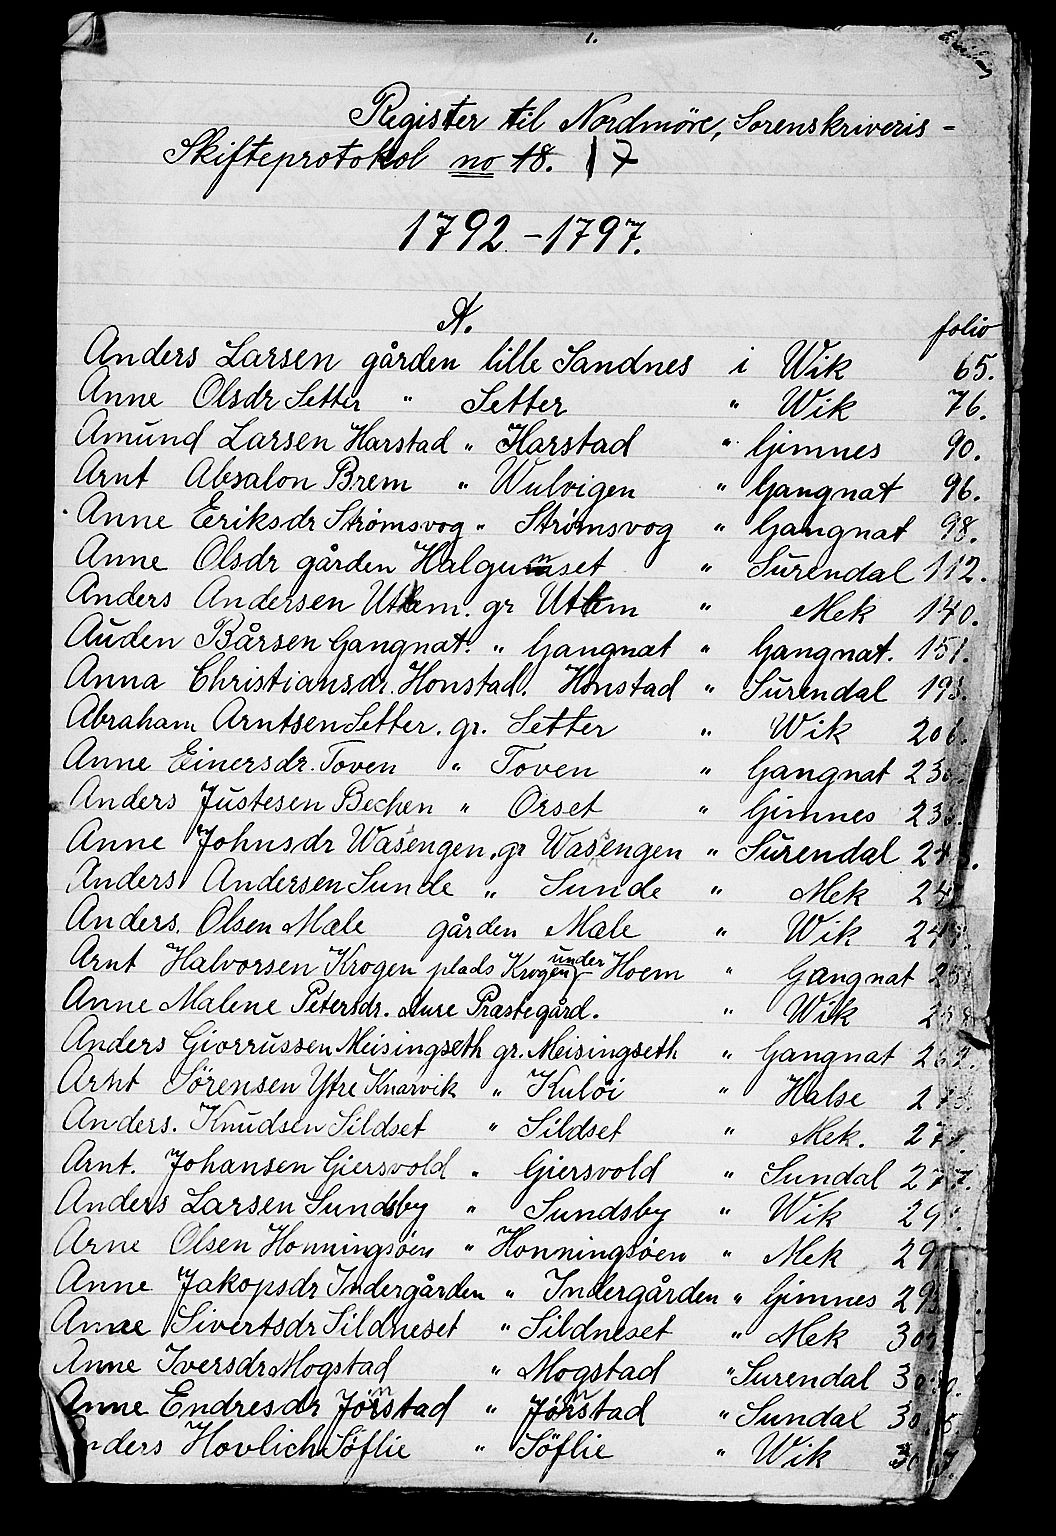 1.
Register til Nordmöre, Sorenskriveris -
Skifteprotokol no 18. 17
1792 - 1797.
A.
folio
Anders Larsen gården lille Sandnes i Wik 65.
Anne Olsdr Setter " Setter " Wik 76.
Amund Larsen Harstad " Harstad " Gimnes 90.
Arnt Absalon Brem " Wulvigen " Gangnat 96.
Anne Eriksdr Strømsvog " Strømsvog " Gangnat 98.
Anne Olsdr gården Halgunset " Surendal 112.
Anders Andersen Utlem. gr Utlem " Mek 140.
Auden Bårsen Gangnat. " Gangnat " Gangnat. 151.
Anna Christiansdr. Honstad. Honstad " Surendal 193.
Abraham Arntsen Setter. gr. Setter " Wik 206.
Anne Einersdr. Toven " Toven " Gangnat
Anders Justesen Bechen " Orset " Gimnes
Anne Johnsdr Wasengen, gr Wasengen " Surendal
Anders Andersen Sunde " Sunde " Mek
Anders. Olsen Mæle gården Mæle " Wik
Arnt Halvorsen Krogen plads Krogen under Hoem " Gangnat
Anne Malene Petersdr. Aure Præstegård. " Wik
Anders Giorrussen Meisingseth gr. Meisingseth " Gangnat 262.
Arnt Sörensen Ytre Knarvik " Kulöi " Halse 273.
Anders. Knudsen Sildset " Sildset " Mek.
Arnt. Johansen Giersvold " Giersvold " Sundal 277.
Anders Larsen Sundsby " Sundsby " Wik
Arne Olsen Honningsöen " Honningsöen " Mek
Anne Jakopsdr Indergården " Indergården " Gimnes
Anne Sivertsdr Sildneset " Sildneset " Mek
Anne Iversdr Mogstad " Mogstad " Surendal
Anne Endresdr Jönstad " Jönstad " Sundal
Anders Hovlich Söflie " Söflie " Wik